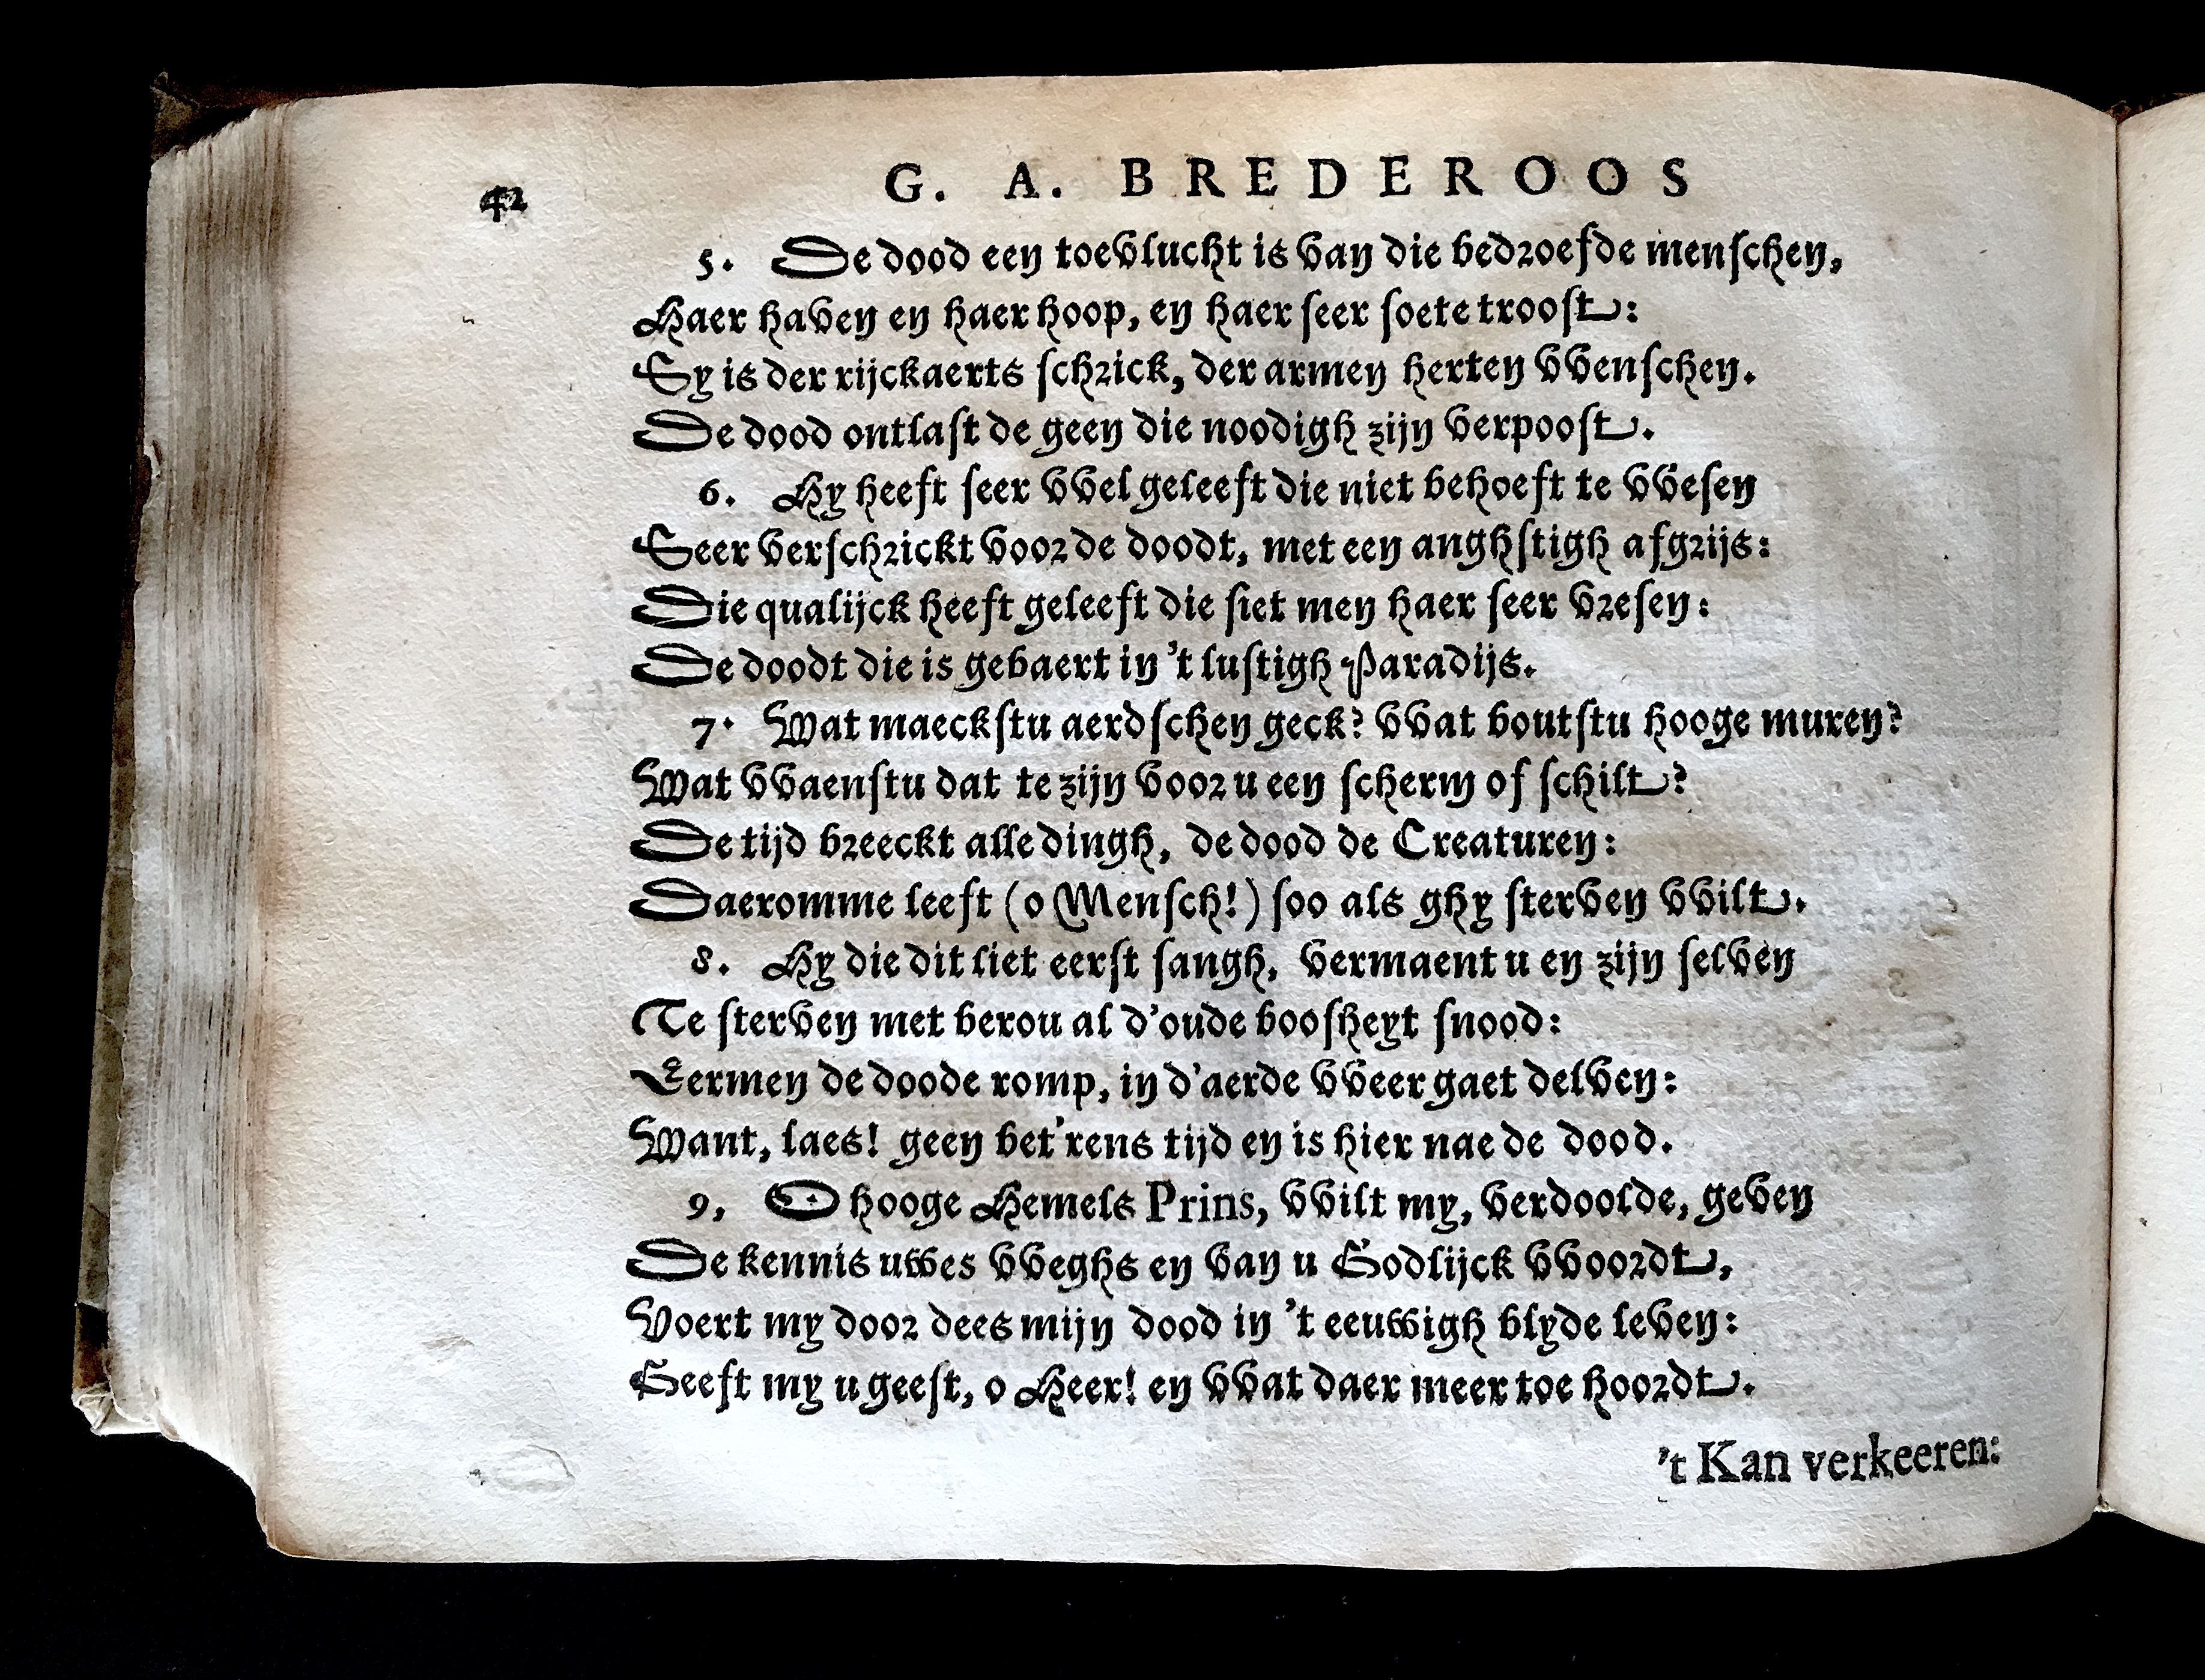 42
G. A. BREDEROOS
5. De dood een toevlucht is van die bedroefde menschen,
Haer haven en haer hoop, en haer seer soete troost:
Sy is der rijckaerts schrick, der armen herten vvenschen.
De dood ontlast de geen die noodigh zijn verpoost.
6. Hy heeft seer vvel geleeft die niet behoeft te vvesen
Seer verschrickt voor de doodt, met een anghstigh afgrijs:
Die qualijck heeft geleeft die siet men haer seer vresen:
De doodt die is gebaert in 't lustigh Paradijs.
7. Wat maeckstu aerdschen geck? vvat boutstu hooge muren?
Wat vvaenstu dat te zijn voor u een scherm of schilt?
De tijd breeckt alle dingh, de dood de Creaturen:
Daeromme leeft (o Mensch!) soo als ghy sterven vvilt.
8. Hy die dit liet eerst sangh, vermaent u en zijn selven
Te sterven met berou al d'oude boosheyt snood:
Eermen de doode romp, in d'aerde vveer gaet delven:
Want, laes! geen bet'rens tijd en is hier nae de dood.
9, O hooge Hemels Prins, vvilt my, verdoolde, geven
De kennis uwes vveghs en van u Godlijck vvoordt,
Voert my door dees mijn dood in 't eeuwigh blyde leven:
Geeft my u geest, o Heer! en vvat daer meer toe hoordt.
't Kan verkeeren: